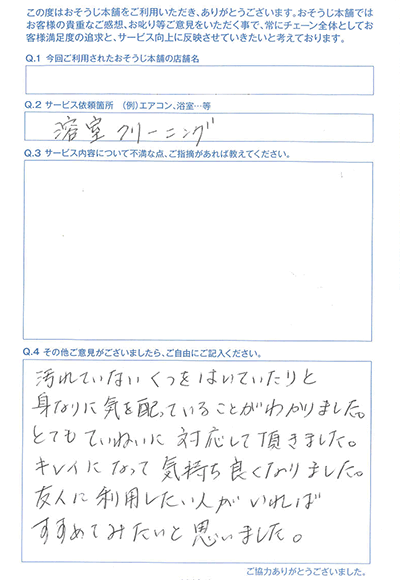 この度はおそうじ本舗をご利用いただき、ありがとうございます。おそうじ本舗では
お客様の貴重なご感想、お叱り等ご意見をいただく事で、常にチェーン全体としてお
客様満足度の追求と、サービス向上に反映させていきたいと考えております。
Q.1 今回ご利用されたおそうじ本舗の店舗名
Q.2 サービス依頼箇所 (例)エアコン、浴室…等
浴室クリーニング
Q.3 サービス内容について不満な点、ご指摘があれば教えてください。
Q.4 その他ご意見がございましたら、ご自由にご記入ください。
汚れていないくつをはいていたりと
身なりに気を配っていることがわかりました。
とてもていねいに対応して頂きました。
キレイになって気持ち良くなりました。
友人に利用したい人がいれば
すすめてみたいと思いました。
ご協力ありがとうございました。